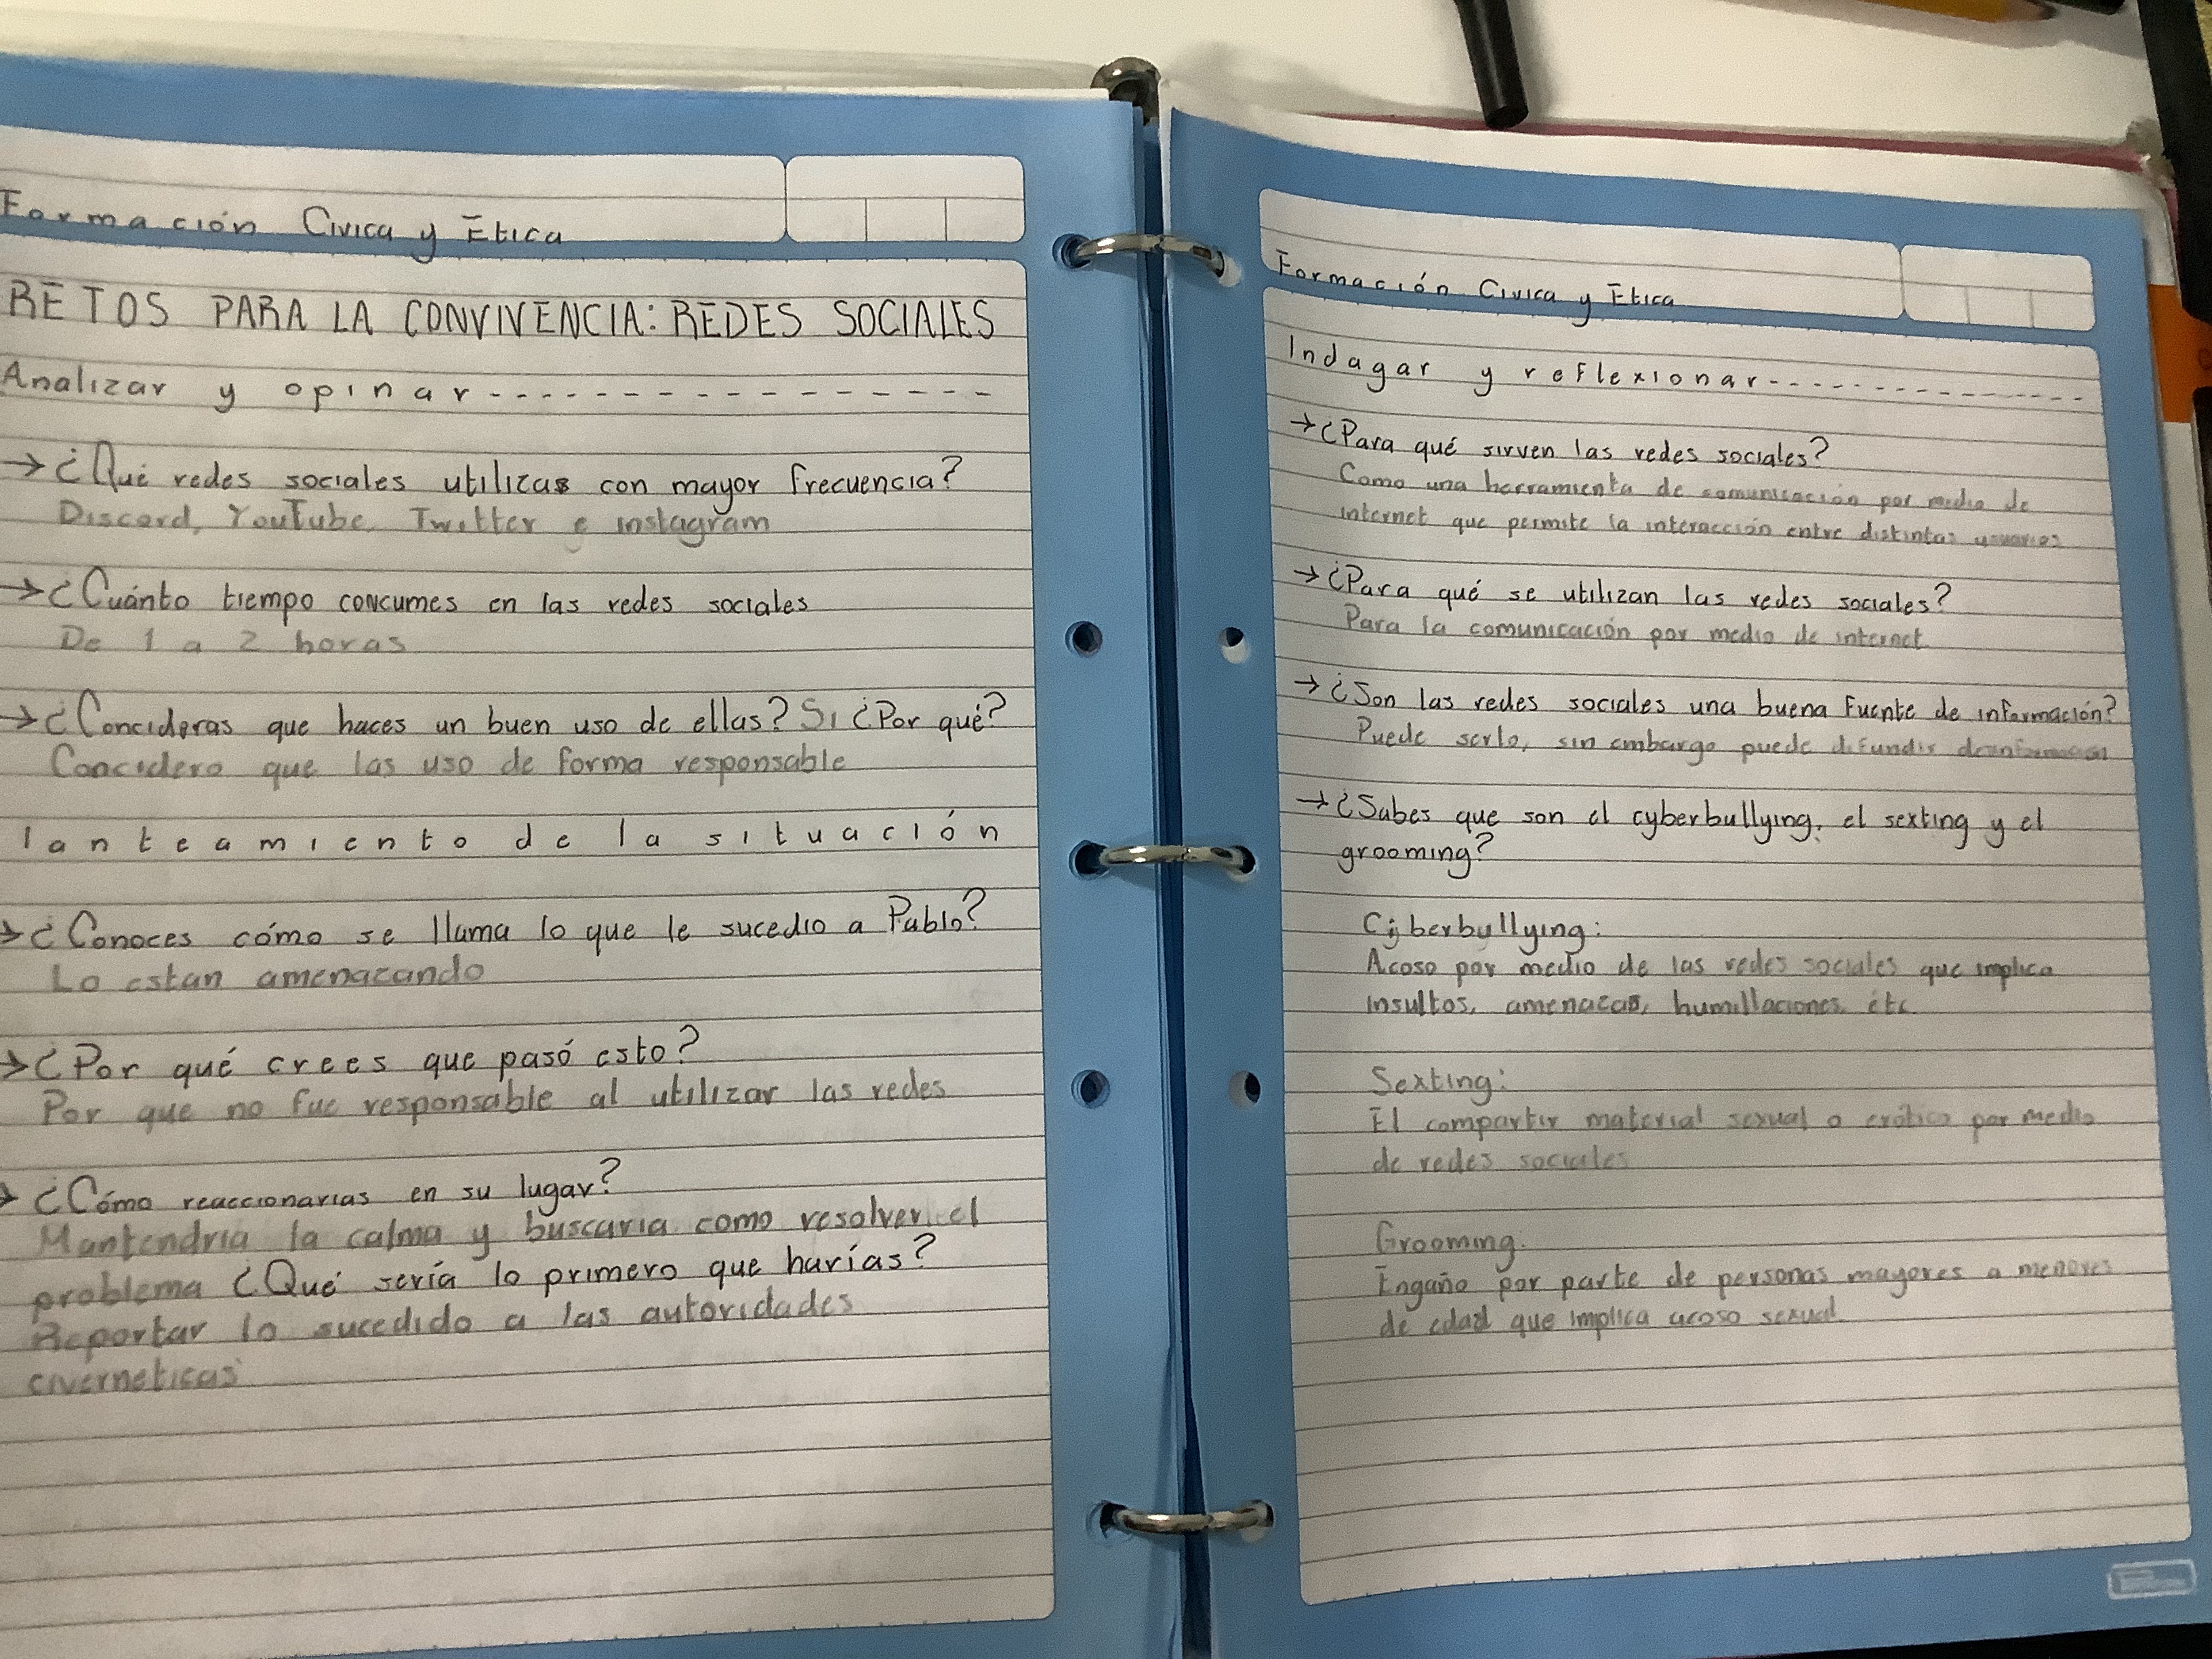 Formación Civica y Etica
RETOS PARA LA CONVIVENCIA: REDES SOCIALES
Analizar y opinar-----------------
→¿Qué redes sociales utilizas con mayor frecuencia?
Discord, YouTube, Twitter e instagram
→¿Cuánto tiempo concumes en las redes sociales
De 1 a 2 horas
→¿Concideras que haces un buen uso de ellas? Si ¿Por qué?
Concidero que las uso de forma responsable
lanteamiento de la situación
→¿Conoces cómo se llama lo que le sucedio a Pablo?
Lo estan amenazando
→¿Por qué crees que pasó esto?
Por que no fue responsable al utilizar las redes
→¿Cómo reaccionarias en su lugar?
Mantendria la calma y buscaria como resolver el
problema ¿Qué sería lo primero que harías?
Reportar lo sucedido a las autoridades
civerneticas
Formación Civica y Etica
Indagar y reflexionar---------------
→¿Para qué sirven las redes sociales?
Como una herramienta de comunicación por medio de
internet que permite la interacción entre distintas usuarios
→¿Para qué se utilizan las redes sociales?
Para la comunicación por medio de internet
→¿Son las redes sociales una buena fuente de información?
Puede serlo, sin embargo puede difundir
→¿Sabes que son el cyberbullying, el sexting y el
grooming?
Cyberbullying:
Acoso por medio de las redes sociales que implica
insultos, amenazas, humillaciones, etc.
Sexting:
El compartir material sexual o erótico por medio
de redes sociales
Grooming:
Engaño por parte de personas mayores a menores
de edad que implica acoso sexual.